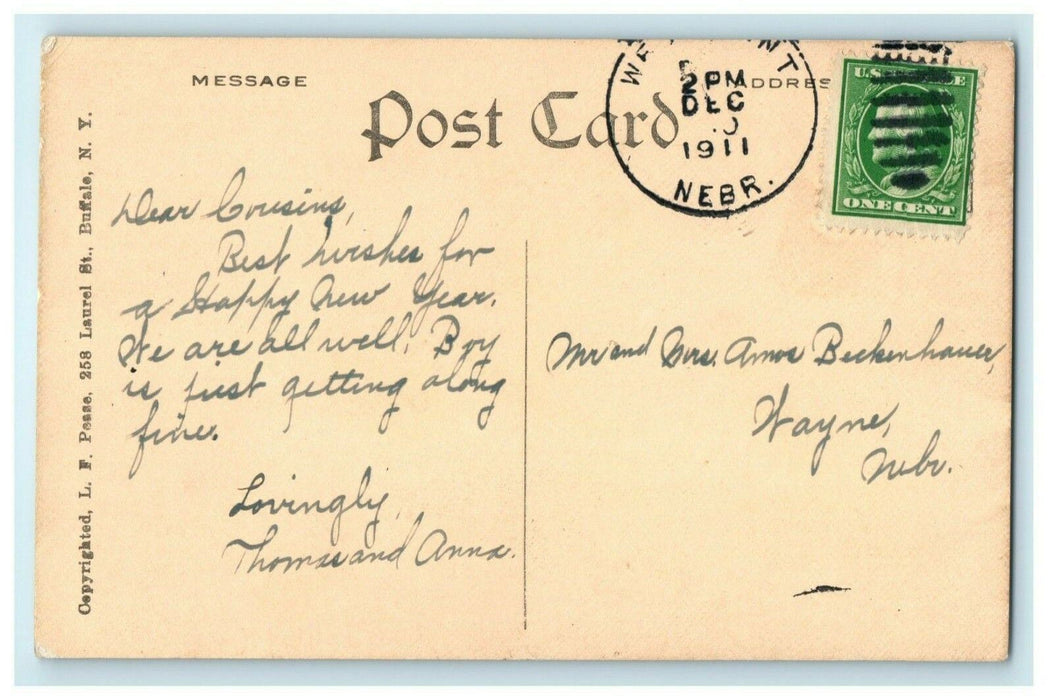 MESSAGE
Post Card
2 PM
DEC
1911
NEBR.
ONE CENT
Dear Cousins,
Best wishes for
a Happy New Year.
We are all well. Boy
is just getting along
fine.
Lovingly,
Thomas and Anna.
Mr and Mrs. Amos Beckenhauer,
Wayne,
Nebr.
Copyrighted, L. F. Pease, 258 Laurel St., Buffalo, N. Y.